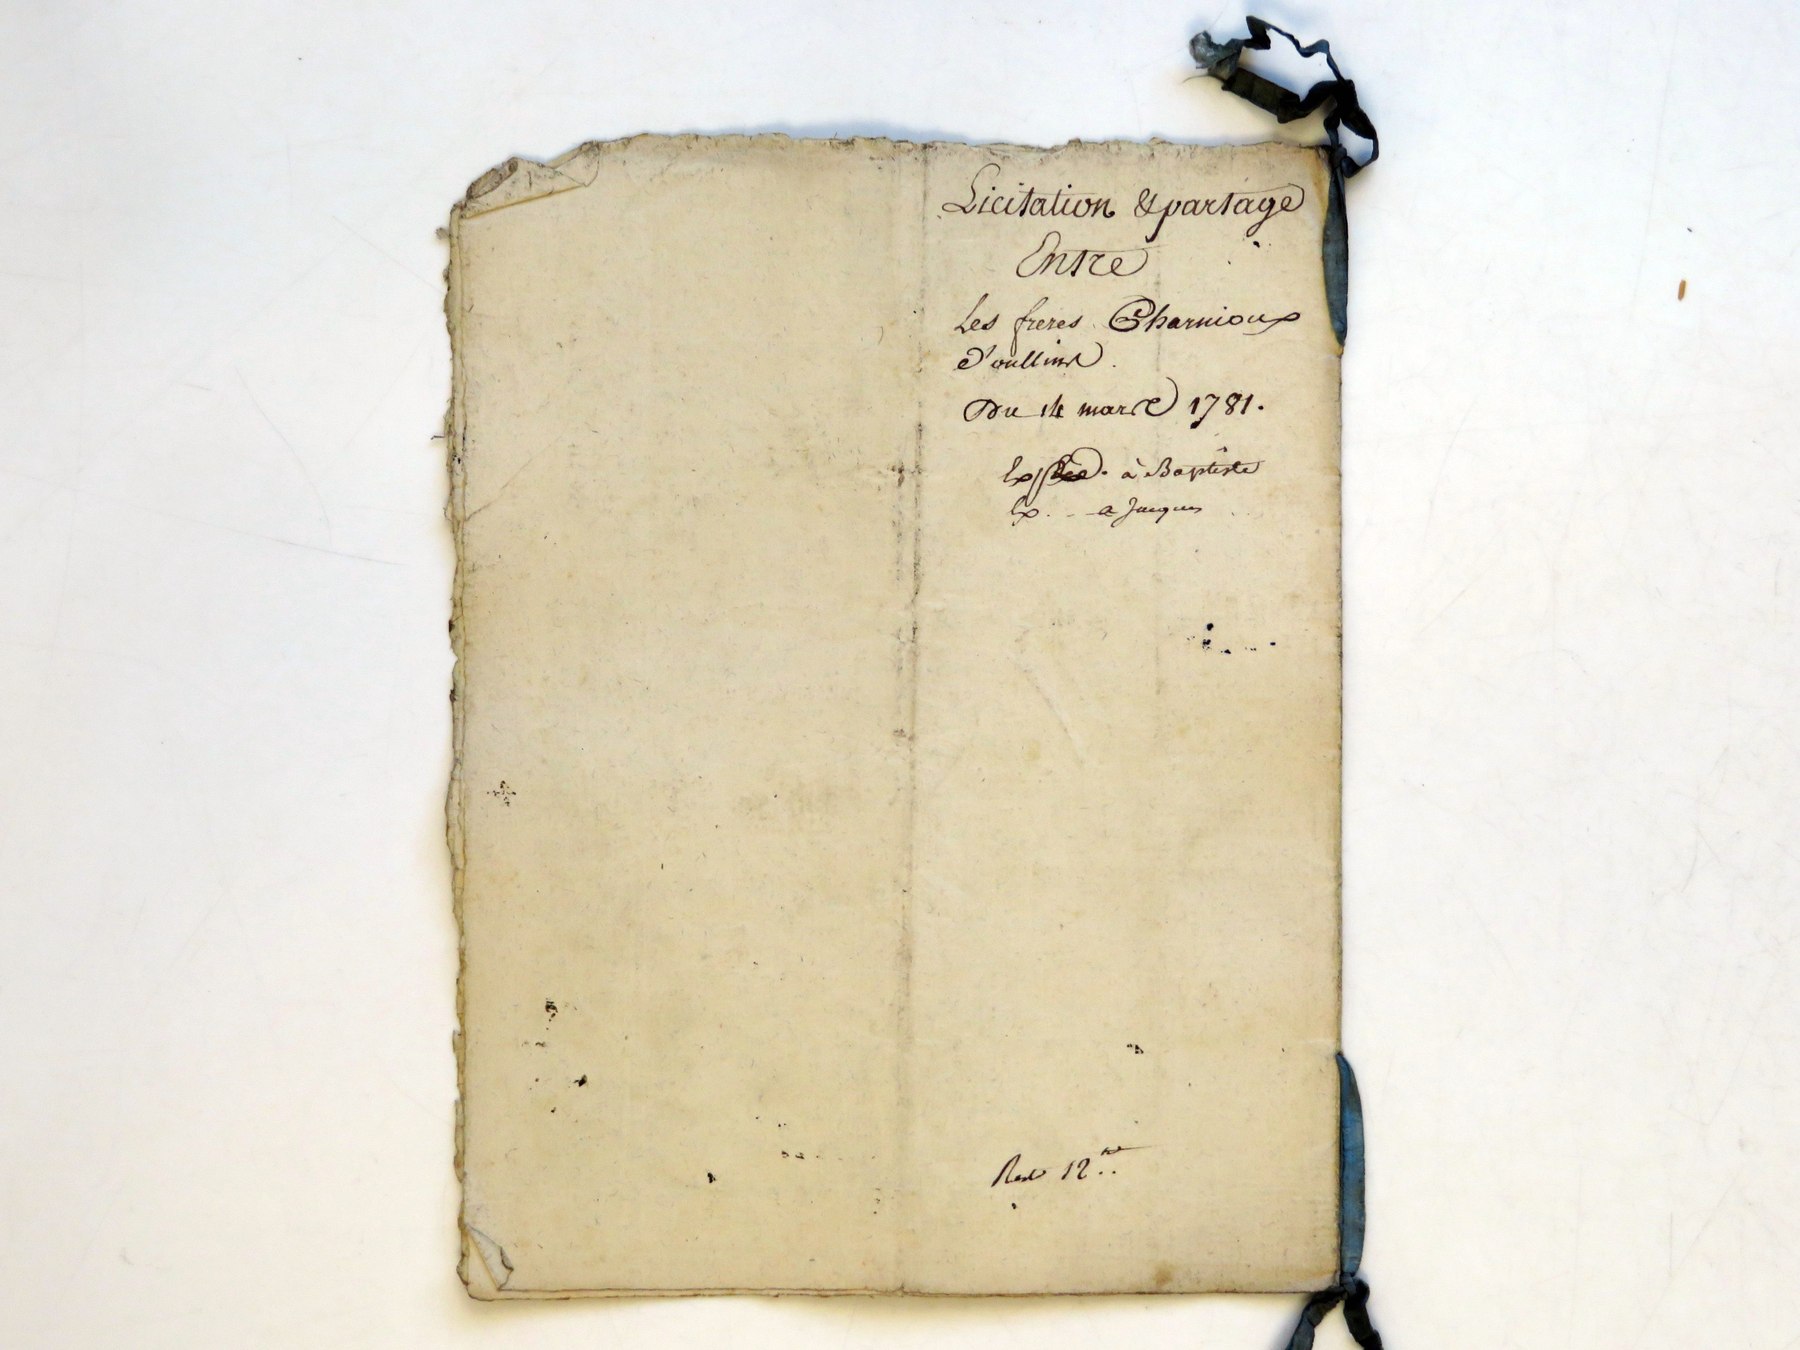 Licitation & partage
Entre
Les freres Charnioux
d'oullins.
Du 14 mars 1781.
Exped. à Baptiste
Ex. - a Jacques
Rest 12